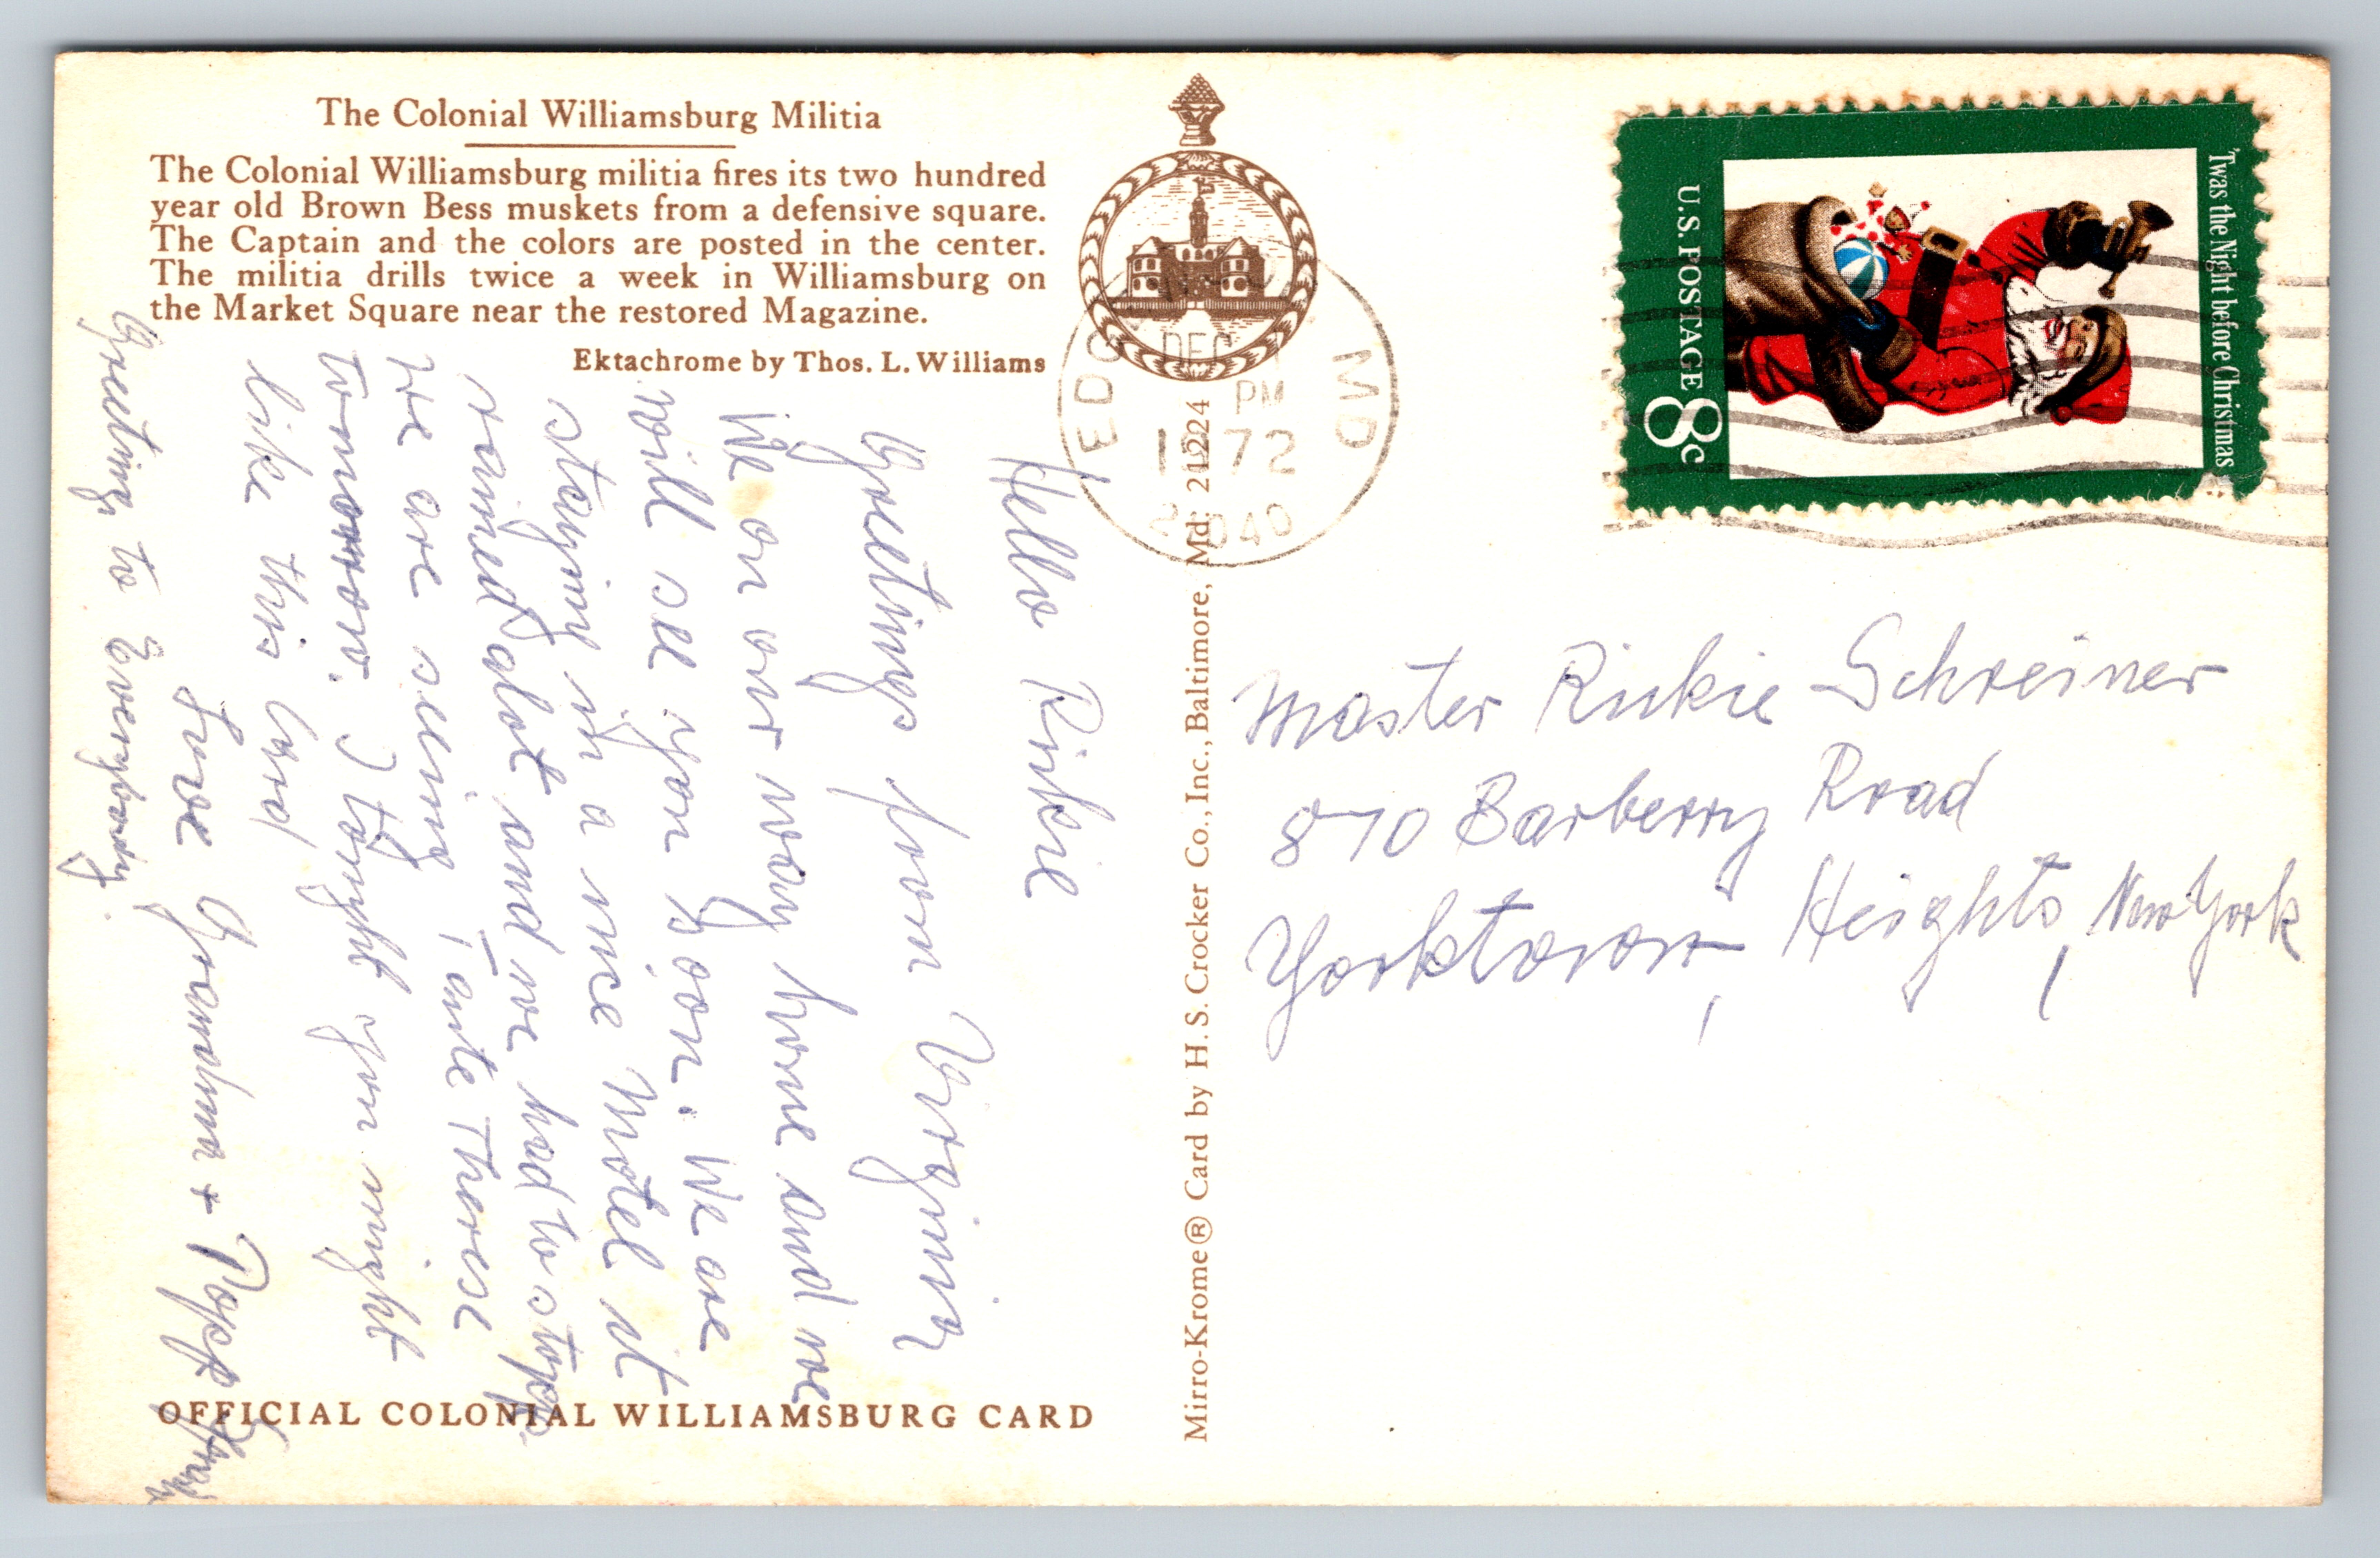 The Colonial Williamsburg Militia
The Colonial Williamsburg militia fires its two hundred
year old Brown Bess muskets from a defensive square.
The Captain and the colors are posted in the center.
The militia drills twice a week in Williamsburg on
the Market Square near the restored Magazine.
Ektachrome by Thos. L. Williams
Hello Rikie
Greetings from Virginia
We on our way home and we
will see you soon. We are
staying in a nice Motel it
rained alot and we had to stopp.
We are seeing Tante Therese
tomorrow. I tought you might
like this Card
Love Grandma + Popp
Greeting to Everybody.
OFFICIAL COLONIAL WILLIAMSBURG CARD
Mirro-Krome® Card by H. S. Crocker Co., Inc., Baltimore, Md. 21224
MD
DEC
PM
1972
'Twas the Night before Christmas
U.S. POSTAGE 8c
Master Rickie Schreiner
870 Barberry Road
Yorktown, Heights, New York